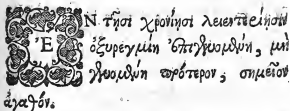 ἘΝ τῇσι χρονίῃσι λειεντερίῃσιν
ὀξυρεγμίη ἐπιγενομένη, μὴ
γενομένη πρότερον, σημεῖον
ἀγαθόν.